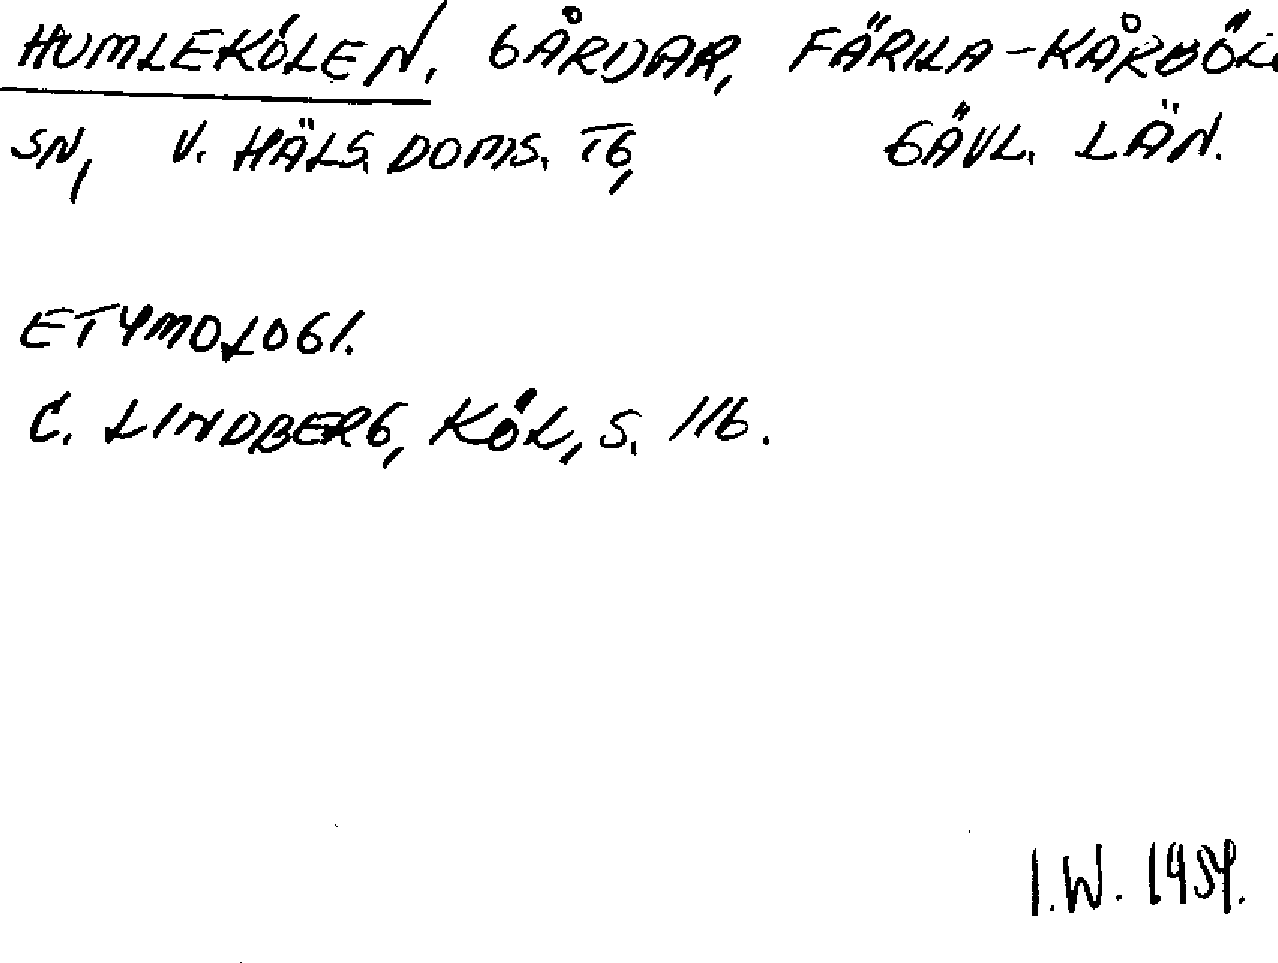 HUMLEKÖLEN, GÅRDAR, FÄRILA-KÅRBÖL
SN, V. HÄLS. DOMS. TG, GÄVL. LÄN.
ETYMOLOGI.
C. LINDBERG, KÖL, S. 116.
I.W. 1959.